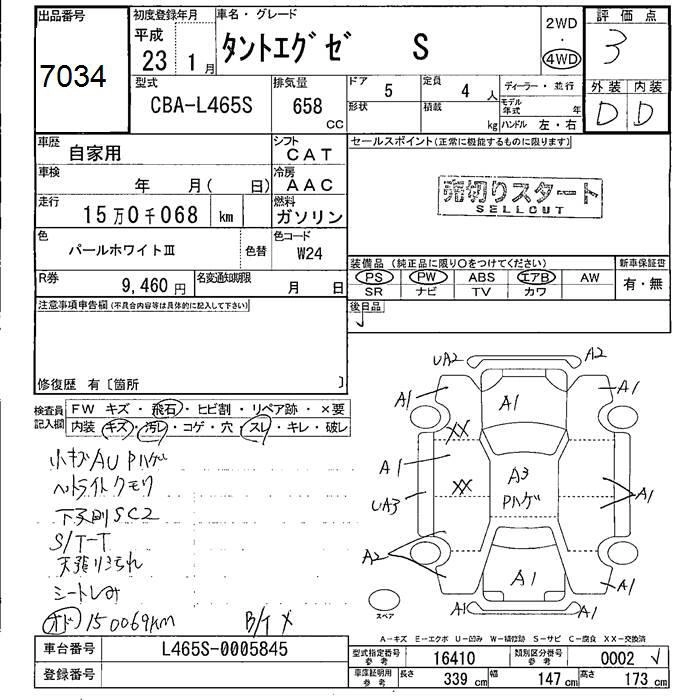 出品番号
7034
初度登録年月
平成
23 1月
車名・グレード
タントエグゼ S
2WD
・
4WD
評価点
3
外装 内装
D D
型式
CBA-L465S
排気量
658
CC
ドア
5
定員
4人
形状
積載
kg
ディーラー・並行
モデル年式 年
ハンドル 左・右
車歴
自家用
シフト
CAT
車検
年 月( 日)
冷房
AAC
走行
15万0千068 km
燃料
ガソリン
色
パールホワイトⅢ
色替
色コード
W24
R券
9,460円
名変通知期限
月 日
セールスポイント(正常に機能するものに限ります)
売切りスタート
SELLOUT
装備品 (純正品に限り○をつけてください)
PS PW ABS エアB AW
SR ナビ TV カワ
新車保証書
有・無
後日品
注意事項申告欄(不具合内容等は具体的に記入して下さい)
修復歴 有〔箇所 〕
検査員記入欄
FW キズ・飛石・ヒビ割・リペア跡・×要
内装 キズ・汚レ・コゲ・穴・スレ・キレ・破レ
小キズAU Pハゲ
ヘッドライトクモリ
下廻り SC2
S/T-T
シートしみ
オド 150069km
B/T メ
UA2
A2
A1
A1
A1
XX
A1
A3
Pハゲ
XX
UA3
A1
A2
A1
A1
A1
A1
スペア
A-キズ E-エクボ U-凹み W-補修跡 S-サビ C-腐食 XX-交換済
車台番号
L465S-0005845
登録番号
型式指定番号
参考
16410
類別区分番号
参考
0002
車庫証明用
参考
長さ
339 cm
幅
147 cm
高さ
173 cm